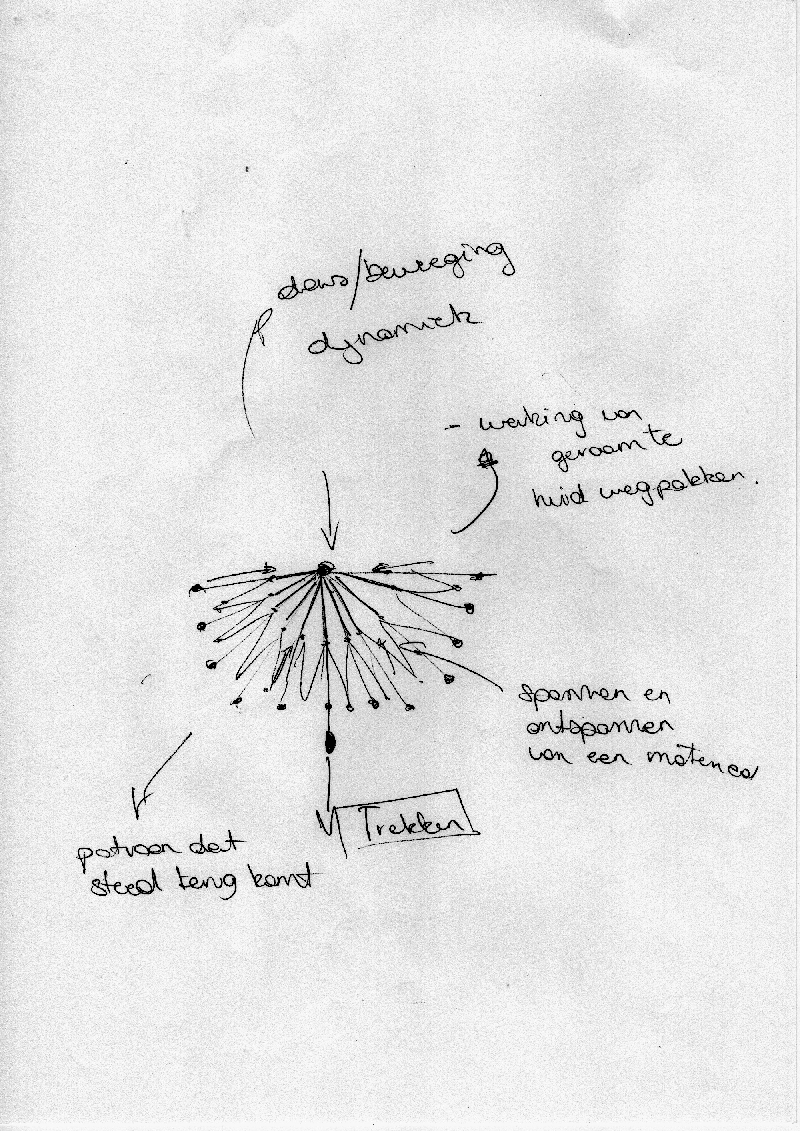 dans/beweging
dynamiek
- werking van
geraamte
huid wegpakken.
spannen en
ontspannen
van een materiaal
Trekken
patroon dat
steed terug komt